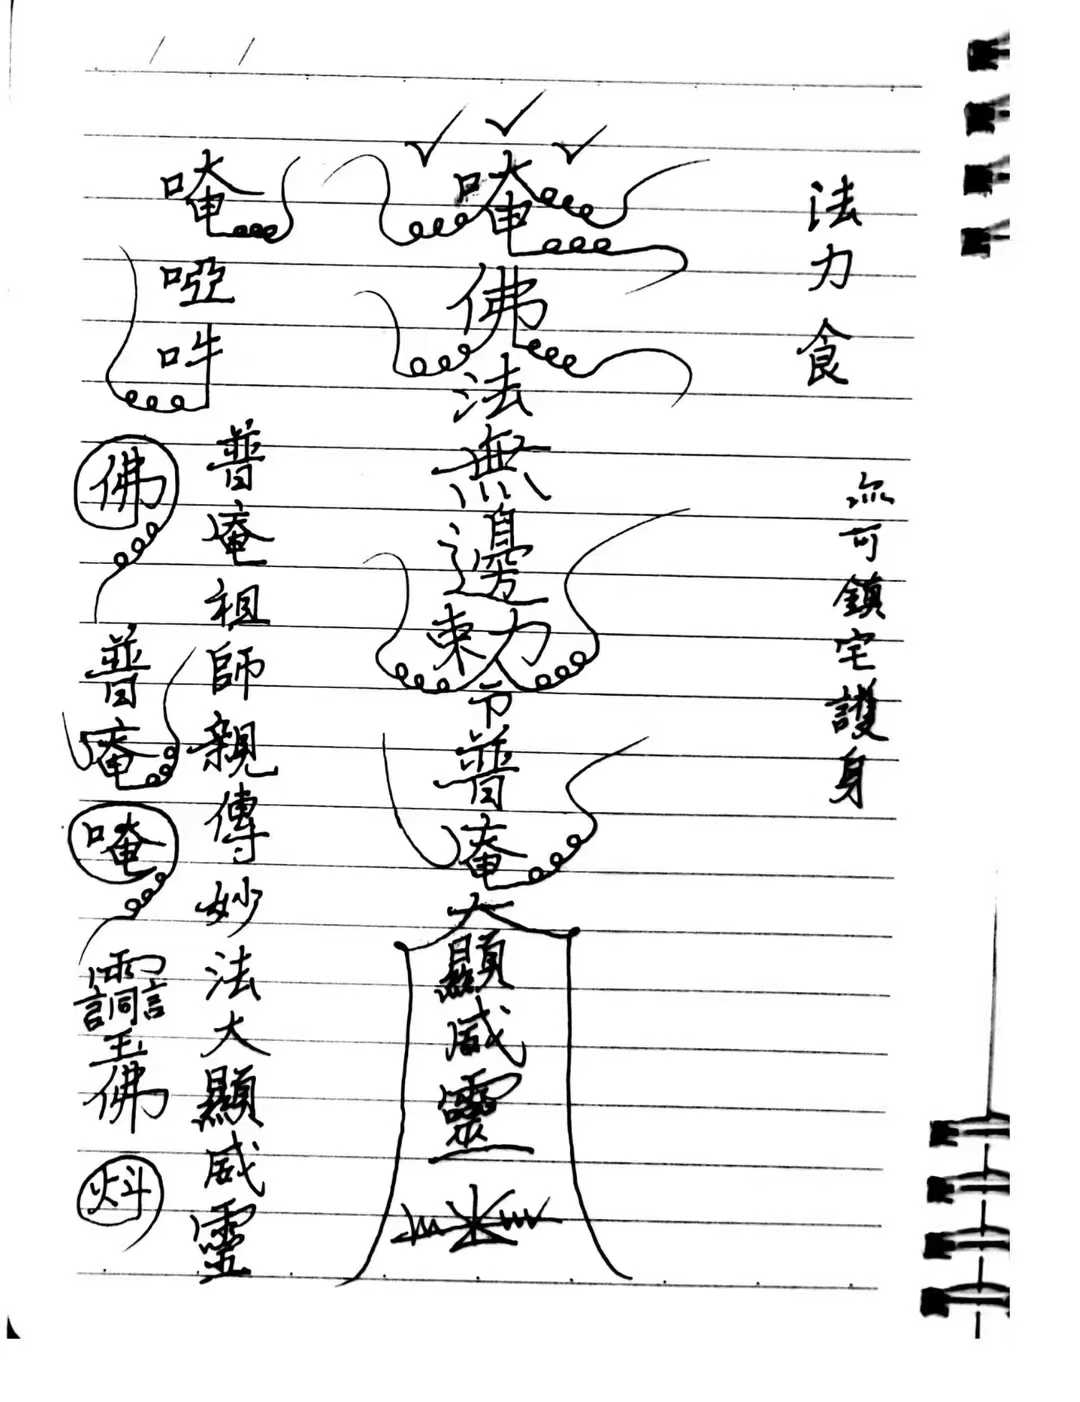 法力食
可鎮宅護身
唵佛法無邊力敕令普庵大顯威靈
唵啞吽
普庵祖師親傳妙法大顯威靈
佛普庵唵佛